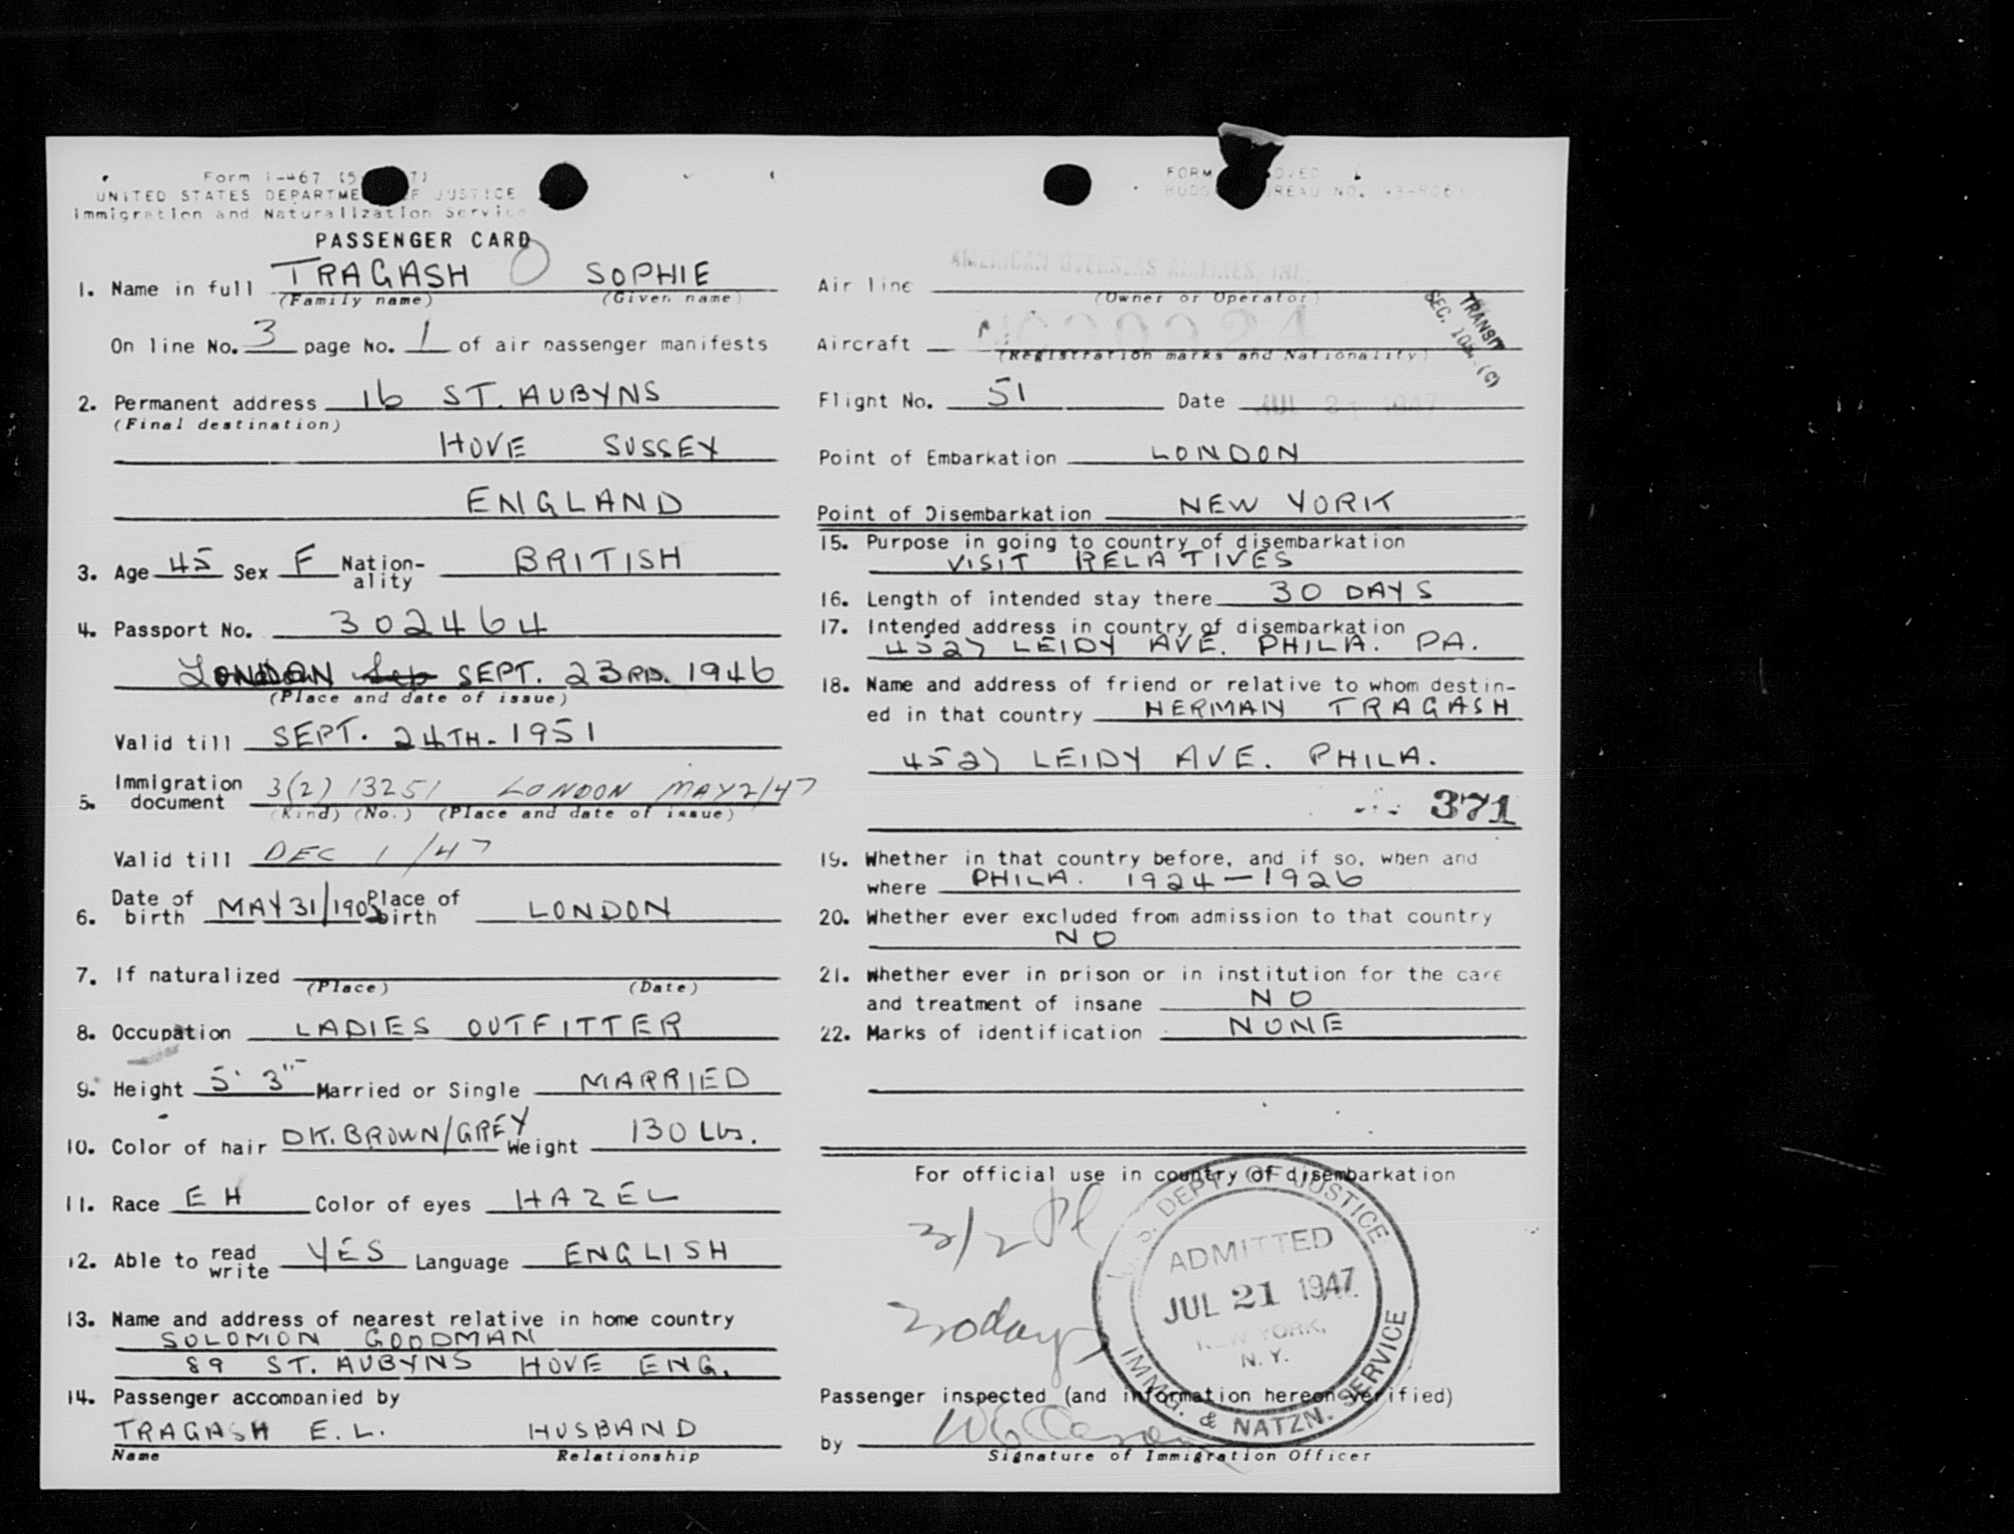 Form I-467
UNITED STATES DEPARTMENT OF JUSTICE
Immigration and Naturalization Service
PASSENGER CARD
1. Name in full TRAGASH SOPHIE
(Family name) (Given name)
On line No. 3 page No. 1 of air passenger manifests
2. Permanent address 16 ST. AUBYNS
(Final destination)
HOVE SUSSEX
ENGLAND
3. Age 45 Sex F Nation-ality BRITISH
4. Passport No. 302464
LONDON SEPT. 23RD. 1946
(Place and date of issue)
Valid till SEPT. 24TH. 1951
5. Immigration document 3(2) 13251 LONDON MAY 2/47
(Kind) (No.) (Place and date of issue)
Valid till DEC 1/47
6. Date of birth MAY 31/190 Place of birth LONDON
7. If naturalized
(Place) (Date)
8. Occupation LADIES OUTFITTER
9. Height 5' 3" Married or Single MARRIED
10. Color of hair DK. BROWN/GREY Weight 130 Lbs.
11. Race E H Color of eyes HAZEL
12. Able to read write YES Language ENGLISH
13. Name and address of nearest relative in home country
SOLOMON GOODMAN
89 ST. AUBYNS HOVE ENG.
14. Passenger accompanied by
TRAGASH E. L. HUSBAND
Name Relationship
FORM APPROVED
BUDGET BUREAU NO.
AMERICAN OVERSEAS AIRLINES, INC.
Air line
(Owner or Operator)
TRANSIT
SEC. 10
(G)
Aircraft
(Registration marks and Nationality)
Flight No. 51 Date JUL 21 1947
Point of Embarkation LONDON
Point of Disembarkation NEW YORK
15. Purpose in going to country of disembarkation
VISIT RELATIVES
16. Length of intended stay there 30 DAYS
17. Intended address in country of disembarkation
4527 LEIDY AVE. PHILA. PA.
18. Name and address of friend or relative to whom destin-
ed in that country HERMAN TRAGASH
4527 LEIDY AVE. PHILA.
371
19. Whether in that country before, and if so, when and
where PHILA. 1924-1926
20. Whether ever excluded from admission to that country
NO
21. Whether ever in prison or in institution for the care
and treatment of insane NO
22. Marks of identification NONE
For official use in country of disembarkation
3/2
30 days
U.S. DEPT. OF JUSTICE
ADMITTED
JUL 21 1947
NEW YORK,
N. Y.
IMMG. & NATZN. SERVICE
Passenger inspected (and information hereon verified)
by
Signature of Immigration Officer